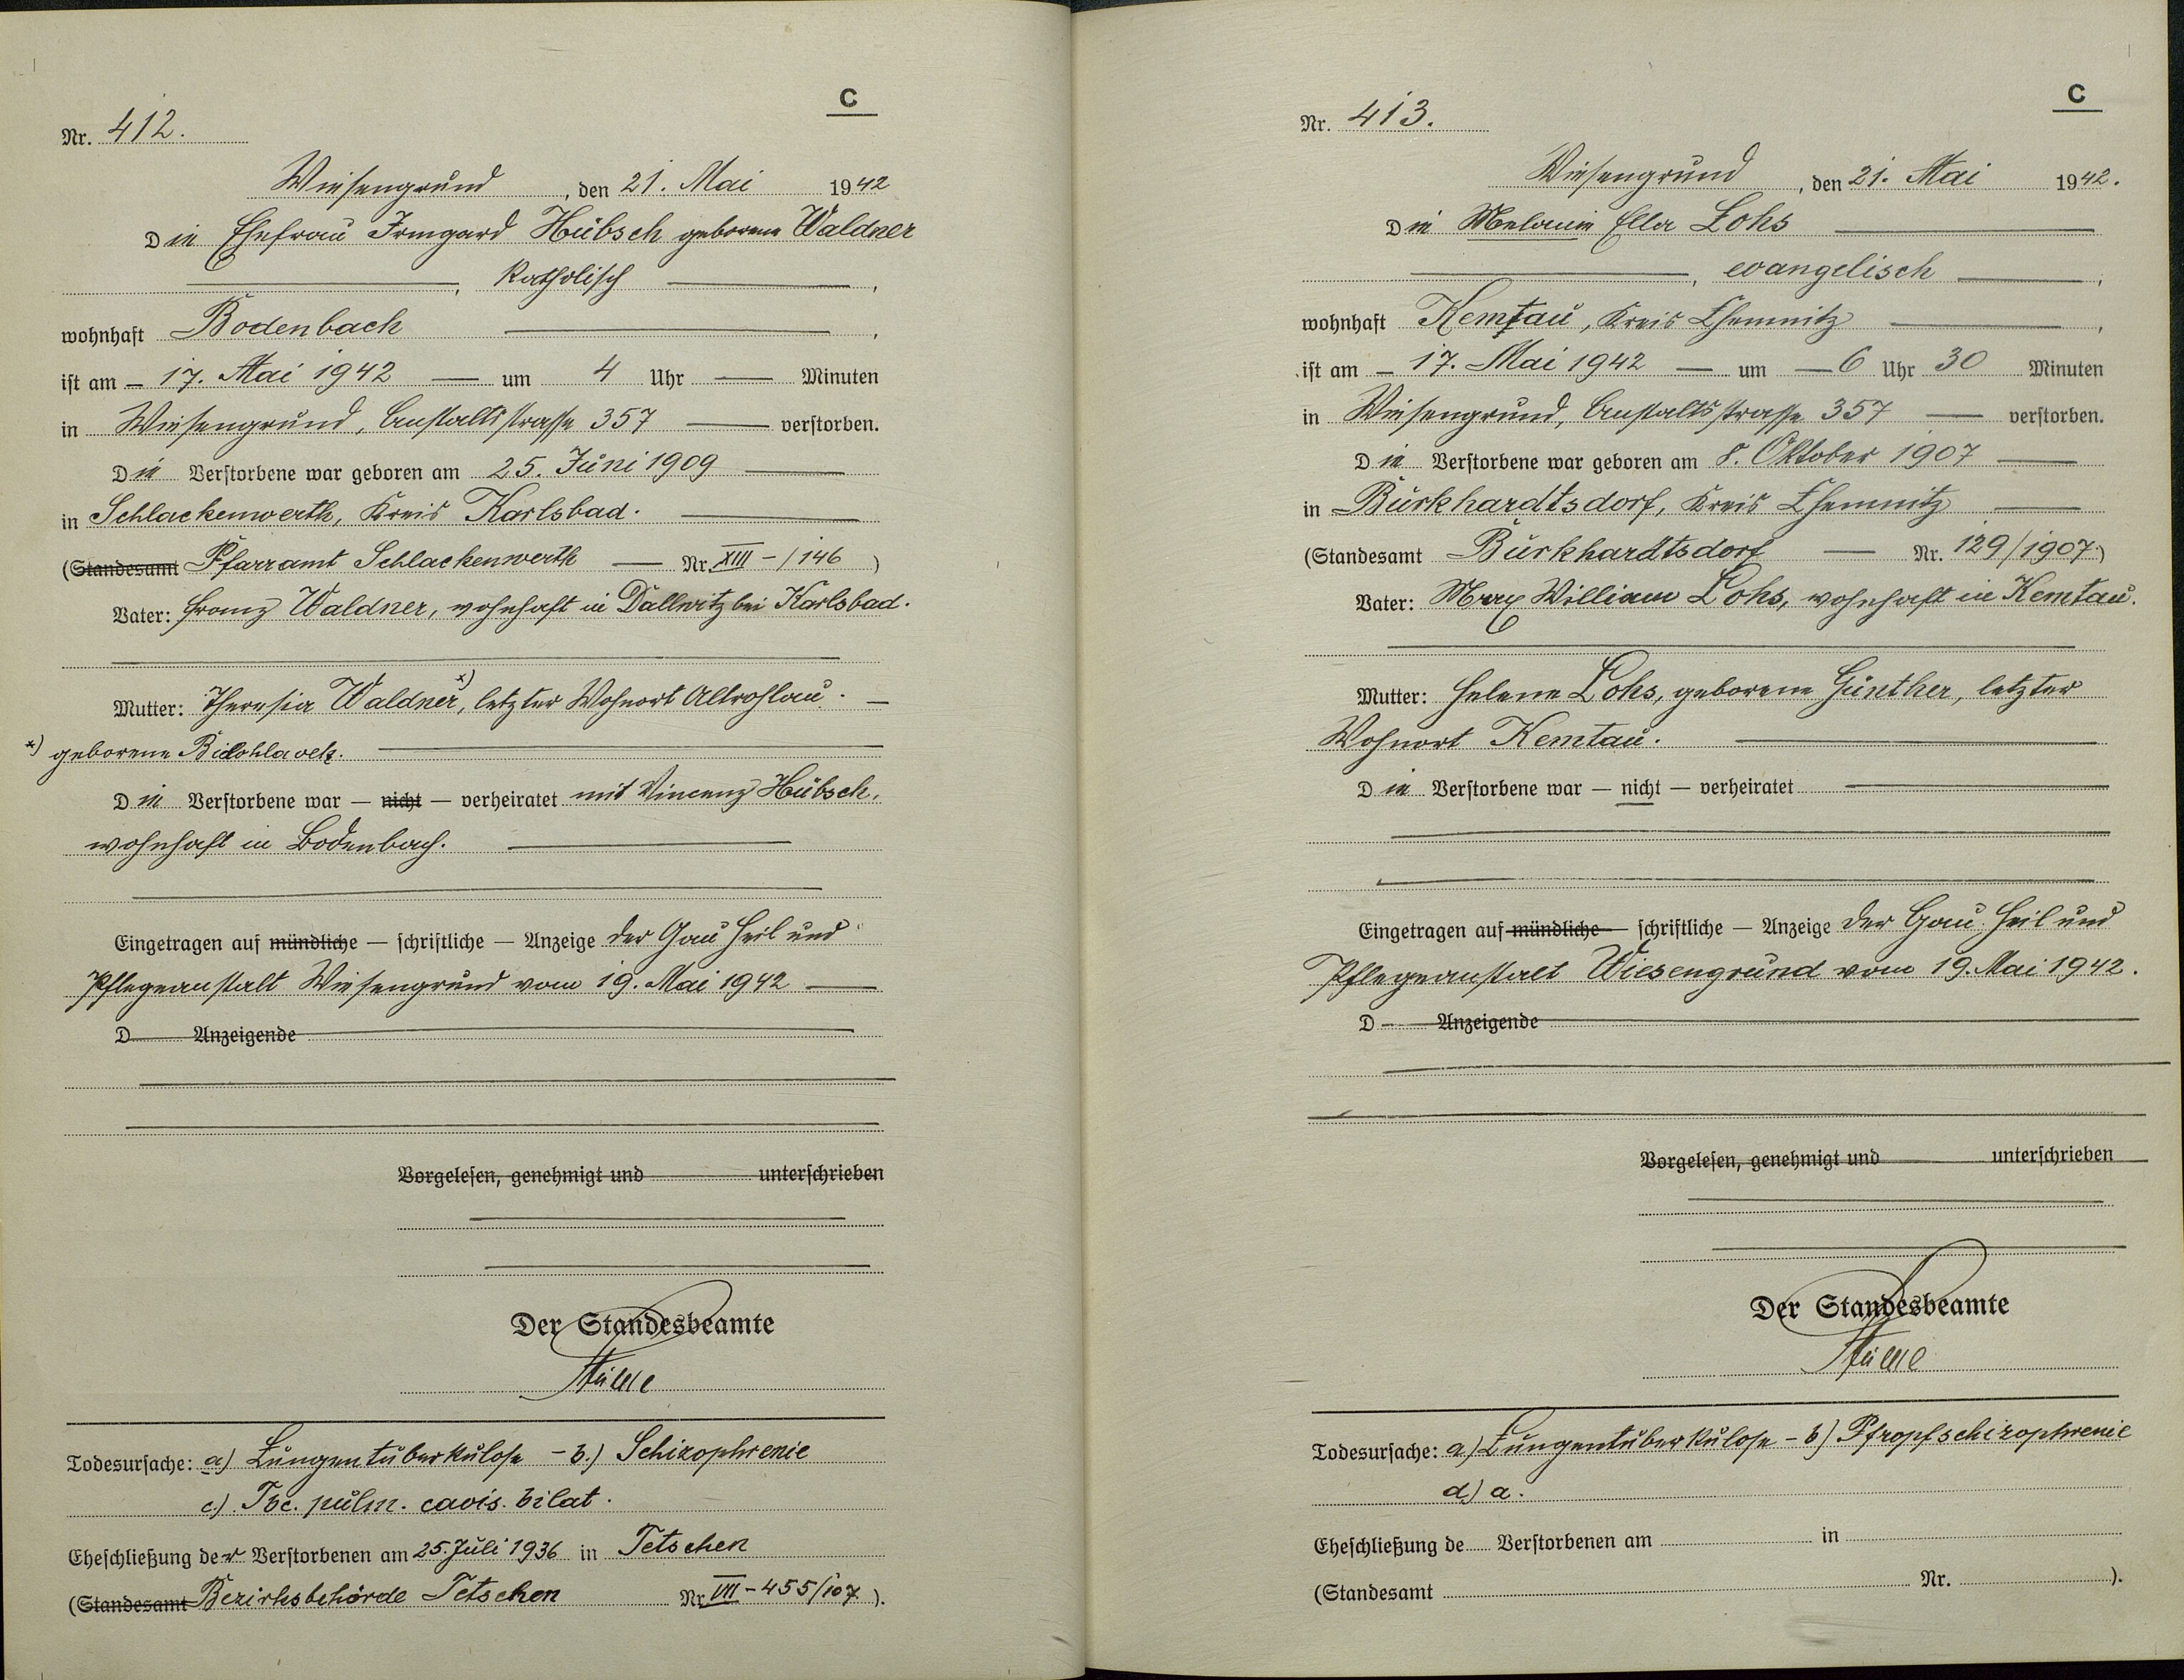 C
Nr. 412.
Wiesengrund, den 21. Mai 1942
Die Ehefrau Irmgard Hübsch geborene Waldner
, katholisch ,
wohnhaft Bodenbach ,
ist am 17. Mai 1942 um 4 Uhr Minuten
in Wiesengrund, Anstaltsstrasse 357 verstorben.
Die Verstorbene war geboren am 25. Juni 1909
in Schlackenwerth, Kreis Karlsbad.
(Standesamt Pfarramt Schlackenwerth Nr. XIII - / 146 )
Vater: Franz Waldner, wohnhaft in Dallwitz bei Karlsbad.
Mutter: Theresia Waldner x), letzter Wohnort Altrohlau.
x) geborene
Die Verstorbene war — nicht — verheiratet mit Vincenz Hübsch,
wohnhaft in Bodenbach.
Eingetragen auf mündliche — schriftliche — Anzeige der Gau Heil und
Pflegeanstalt Wiesengrund vom 19. Mai 1942
D Anzeigende
Vorgelesen, genehmigt und unterschrieben
Der Standesbeamte
Todesursache: a) Lungentuberkulose - b.) Schizophrenie
c.) Tbc. pulm. cavis. bilat.
Eheschließung der Verstorbenen am 25. Juli 1936 in Tetschen
(Standesamt Bezirksbehörde Tetschen Nr. VIII - 455/107 ).
C
Nr. 413.
Wiesengrund, den 21. Mai 1942.
Die Melanie Ella Lohs
, evangelisch ,
wohnhaft Kemtau, Kreis Chemnitz ,
ist am 17. Mai 1942 um 6 Uhr 30 Minuten
in Wiesengrund, Anstaltsstrasse 357 verstorben.
Die Verstorbene war geboren am 8. Oktober 1907
in Burkhardtsdorf, Kreis Chemnitz
(Standesamt Burkhardtsdorf Nr. 129/1907.)
Vater: Max William Lohs, wohnhaft in Kemtau.
Mutter: Helene Lohs, geborene Günther, letzter
Wohnort Kemtau.
Die Verstorbene war — nicht — verheiratet
Eingetragen auf mündliche — schriftliche — Anzeige der Gau Heil und
Pflegeanstalt Wiesengrund vom 19. Mai 1942.
D Anzeigende
Vorgelesen, genehmigt und unterschrieben
Der Standesbeamte
Todesursache: a) Lungentuberkulose - b) Pfropfschizophrenie
d) a.
Eheschließung de Verstorbenen am in
(Standesamt Nr. ).